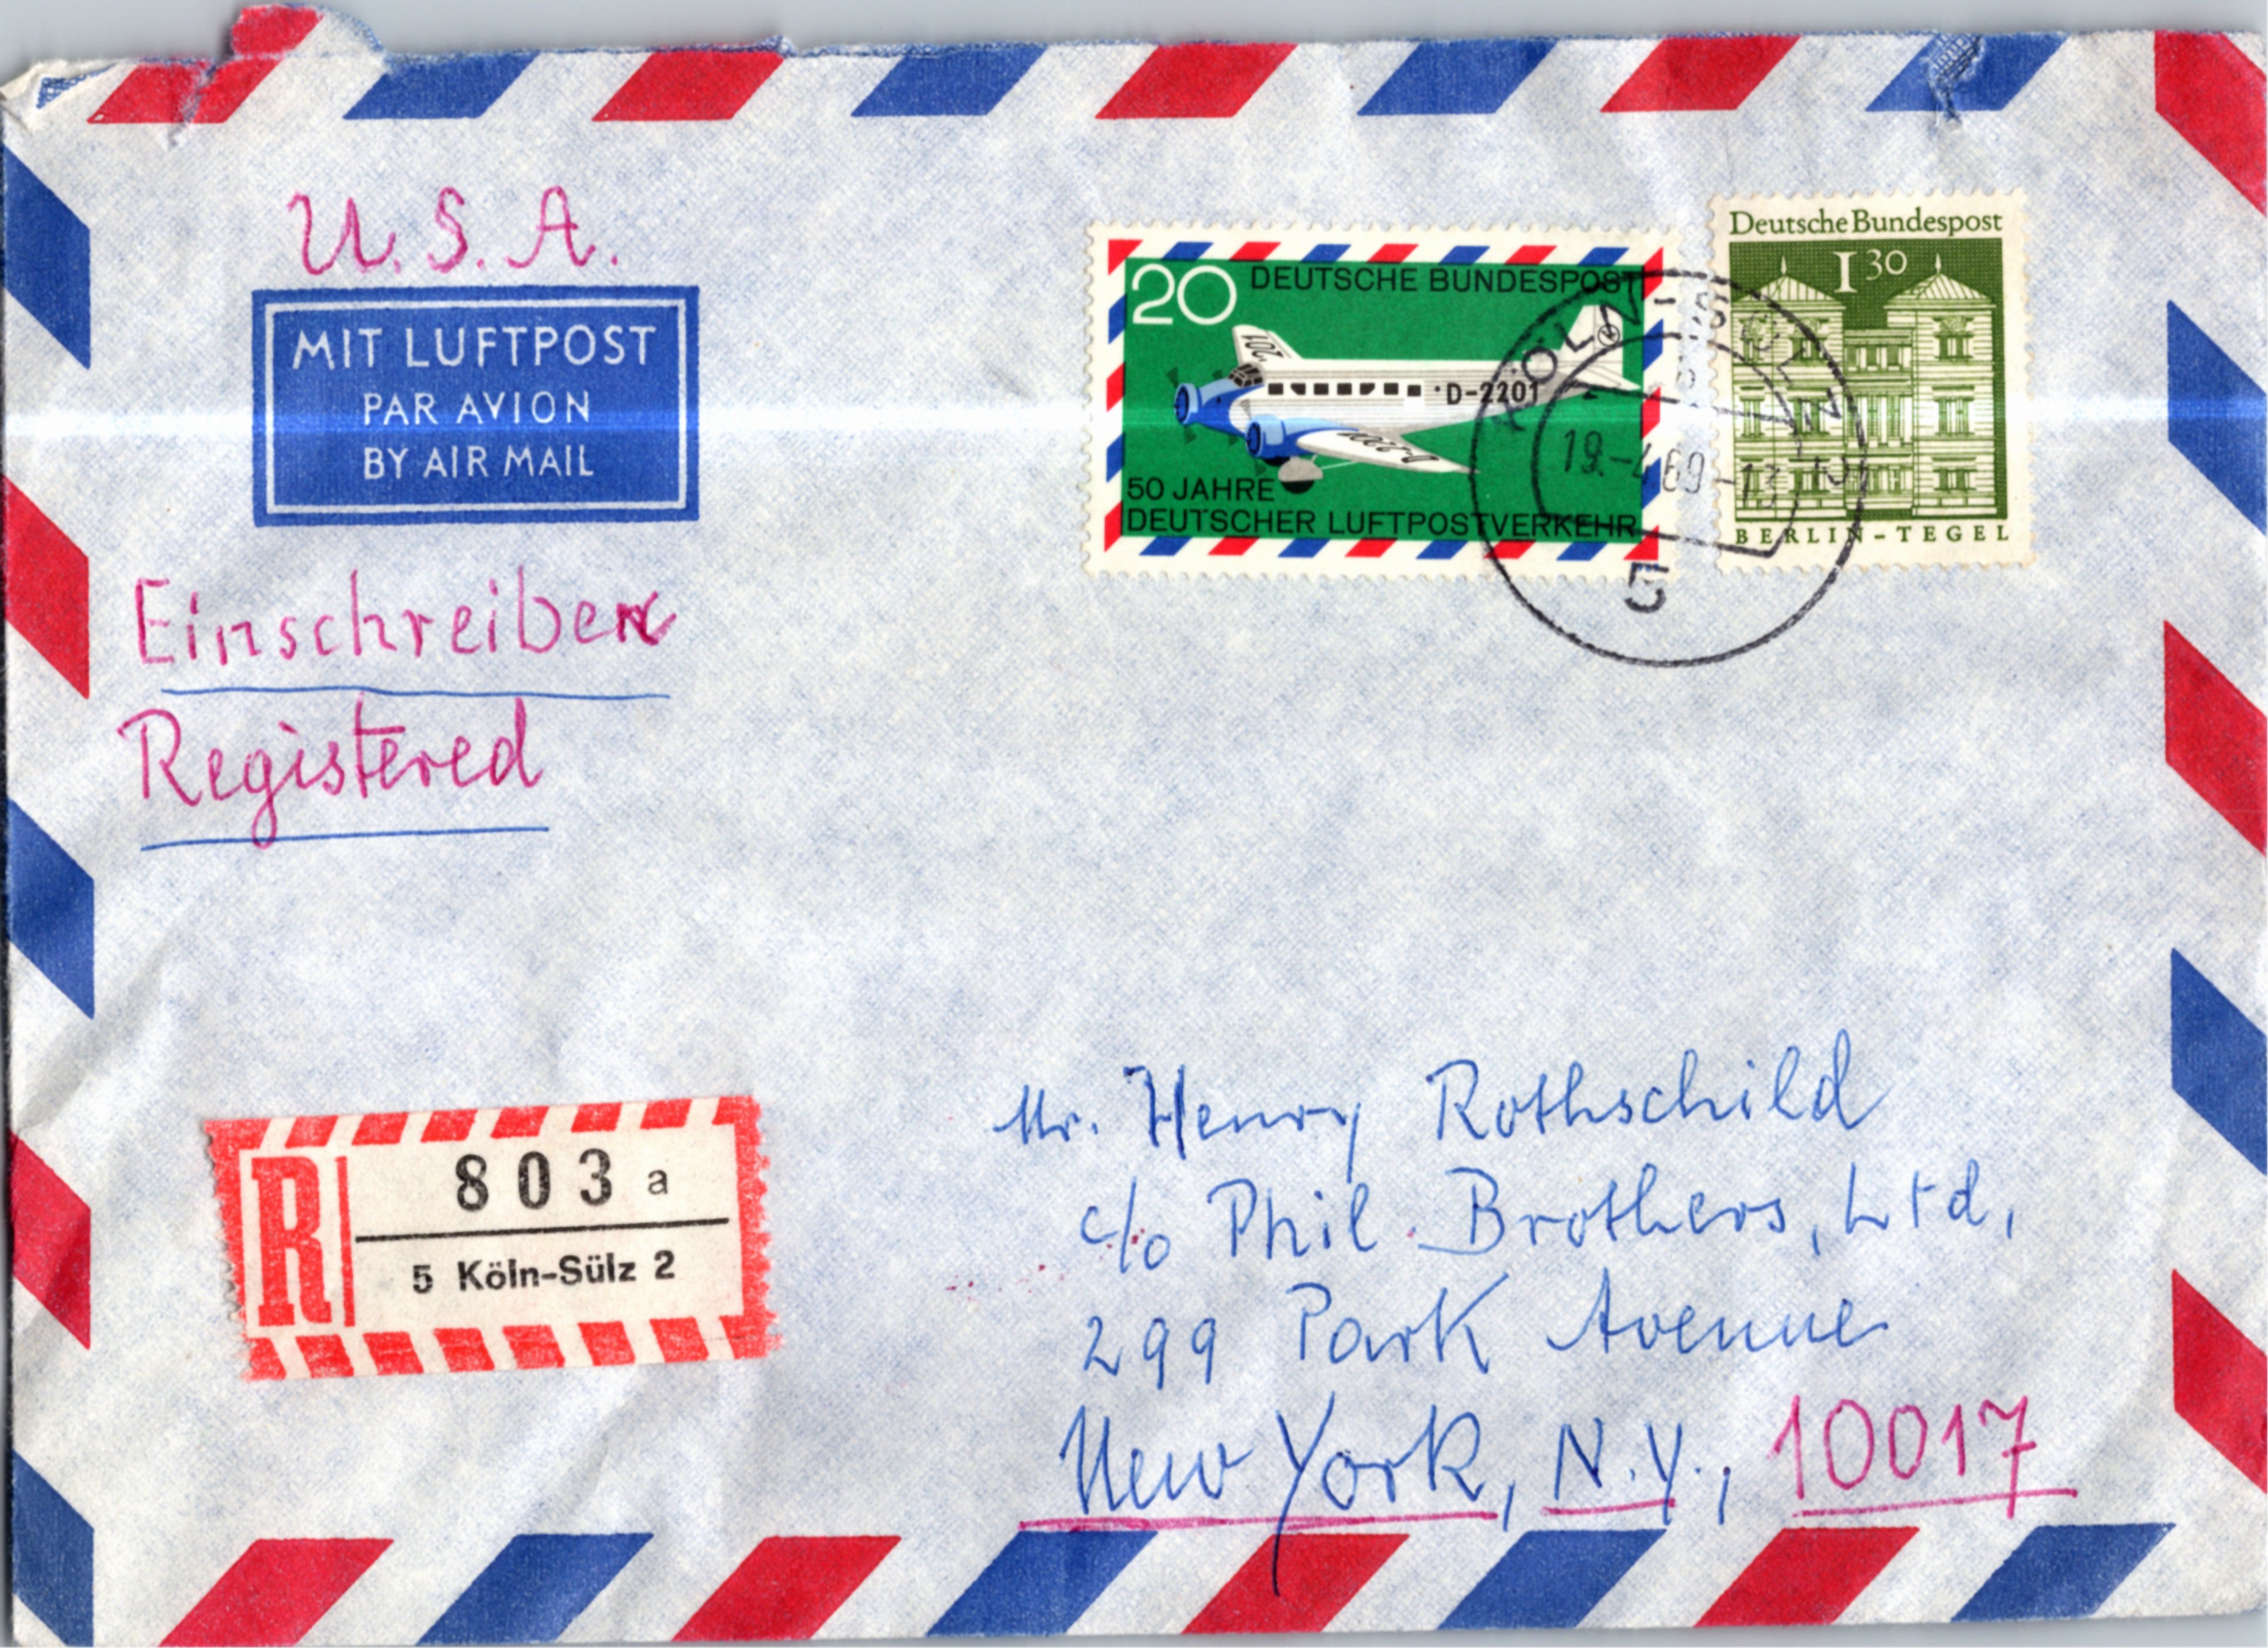 U.S.A.
MIT LUFTPOST
PAR AVION
BY AIR MAIL
Einschreiben
Registered
20 DEUTSCHE BUNDESPOST
201
D-2201
D-2201
50 JAHRE
DEUTSCHER LUFTPOSTVERKEHR
Deutsche Bundespost
1 30
BERLIN-TEGEL
KÖLN-SÜLZ 2
19.-4.69-13
5
R
803 a
5 Köln-Sülz 2
Mr. Henry Rothschild
c/o Phil. Brothers, Ltd,
299 Park Avenue
New York, N.Y., 10017